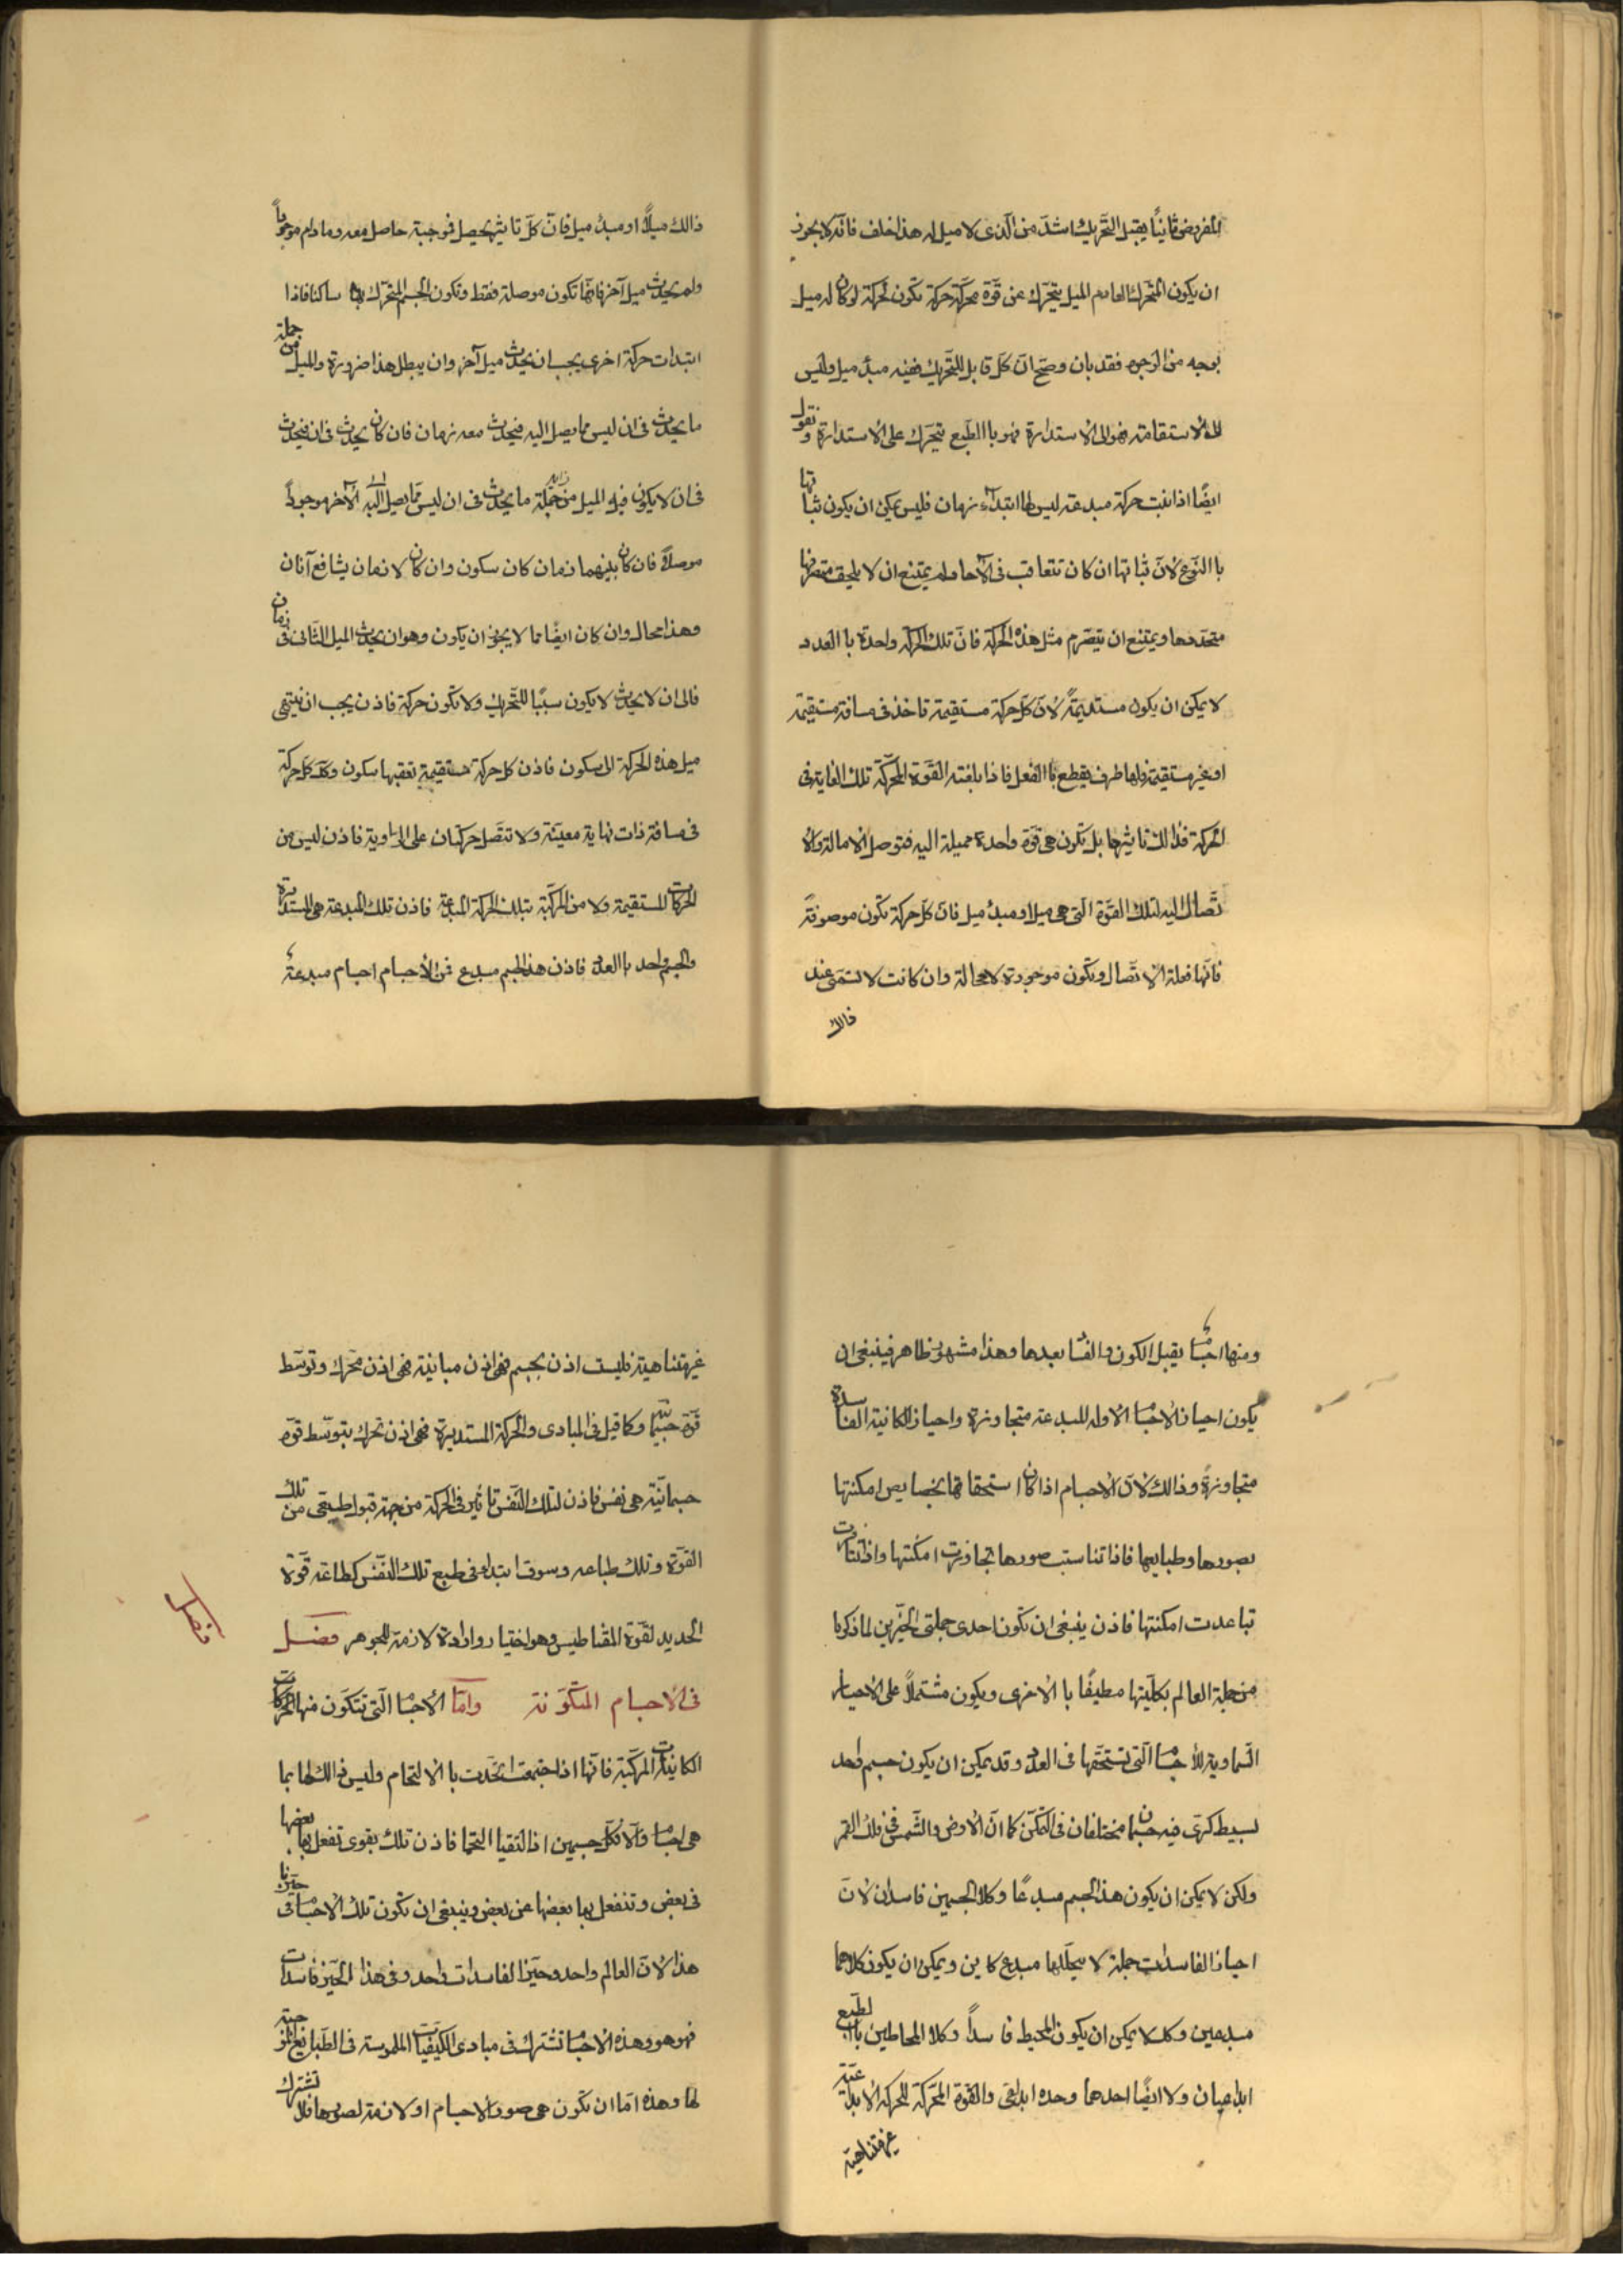 المفروض ثانياً يقبل التحريك اشدّ من الّذى لا ميل له هذا خلف فانّه لا يجوز
ان يكون المتحرّك العادم الميل يتحرّك عن قوّة محرّكة حركة تكون كحركة لو كان له ميل
بوجه من الوجوه فقد بان وصحّ انّ كلّ قابل للتّحريك ففيه مبدأ ميل وليس
الى الاستقامة فهو الى الاستدارة فهو باالطّبع يتحرّك على الاستدارة ونقول
ايضًا اذا ثبت حركة مبدعة ليس لها ابتداء زمان فليس يمكن ان يكون ثباتها
باالنّوع لانّ ثباتها ان كان تتعاقب فى الآحاد لم يمتنع ان لا يلحق متصرّمها
متجدّدها ويمتنع ان يتصرّم مثل هذه الحركة فانّ تلك الحركة واحدة باالعدد
لا يمكن ان يكون مستديمةً لانّ كلّ حركة مستقيمة تاخذ فى مسافة مستقيمة
او غير مستقيمة ولها طرف يقطع باالفعل فاذا بلغته القوّة المحرّكة تلك الغاية فى
الحركة فذالك تاثيرها بل تكون هى قوّة واحدة مميلة اليه فتوصل الامالة والا
تّصال اليه لتلك القوّة الّتى هى ميل او مبدأ ميل فانّ كلّ حركة تكون موصوفة
فانّها فعلة الاتّصال وتكون موجودة لا محالة وان كانت لا تسمّى عند
ذالك
ذالك ميلاً او مبدأ ميل فانّ كلّ تاثير يحصل فموجبة حاصل معه وما دام موجوداً
ولم يحدث ميل آخر فانّها تكون موصلة فقط وتكون الجسم المتحرّك بها ساكنا فاذا
ابتدات حركة اخرى يجب ان يحدث ميل آخر وان يبطل هذا ضرورة والميل من جملة
ما يحدث فى ان ليس مما يصل اليه فيحدث معه زمان فان كان يحدث فى ان فيحدث
فى ان لا يكون فيه الميل من جملة ما يحدث فى ان ليس ممّا يصل اليه الآخر موجوداً
موصلاً فان كان بينهما زمان كان سكون وان كان لا زمان يشافع آنان
وهذا محال وان كان ايضًا مما لا يجوز ان يكون وهو ان يحدث الميل الثّانى فى زمان
فالى ان لا يحدث لا يكون سببًا للتّحريك ولا تكون حركة فاذن يجب ان ينتهى
ميل هذه الحركة الى سكون فاذن كل حركة مستقيمة تعقبها سكون وكذ كلّ حركة
فى مسافة ذات نهاية معيّنة ولا تتصل حركتان على الزاوية فاذن ليس من
الحركات المستقيمة ولا من المركّبة بتلك الحركة المبدعة فاذن تلك المبدعة هى المستديرة
والجسم واحد باالعدد فاذن هذا الجسم مبدع فمن الأجسام اجسام مبدعة
ومنها اجسام يقبل الكون والفساد بعدها وهذا مشهور ظاهر فينبغى ان
يكون احياز الاجسام الاولة المبدعة متجاورة واحياز الكاينة الفاسدة
متجاورةً وذالك لانّ الاجسام اذا كان استحقاقها بخصايص امكنتها
بصورها وطبايعها فاذا تناسبت صورها تجاورت امكنتها واذا تنافرت
تباعدت امكنتها فاذن ينبغى ان تكون احدى جملتى الحيّزين لما ذكرنا
من جملة العالم بكلّيتها مطيفًا باالاخرى ويكون مشتملاً على الاحياز
السّماوية للاجسام الّتى تستحقّها فى العدد وقد يمكن ان يكون جسم واحد
بسيط كرّى فيه جسمان مختلفان فى التمكّن كما انّ الارض والشّمس فى فلك القمر
ولكن لا يمكن ان يكون هذا الجسم مبدعًا وكلا الجسمين فاسدان لانّ
احياز الفاسدات جملة لا يتخلّلها مبدع كاين ويمكن ان يكون كلاهما
مبدعين وكلّا لا يمكن ان يكون المحيط فاسداً وكلا المحاطين باالطّبع
ابداعيان ولا ايضًا احدهما وحده ابداعى والقوّة المحرّكة للحركة الابداعيّة
غير متناهية
غير متناهية فليست اذن بجسم فهى اذن مباينة فهى اذن محرّك وتوسّط
قوّة جسمانيّة وكما قيل فى المبادى والحركة المستديرة فهى اذن تحرك بتوسّط قوّة
جسمانيّة هى نفس فاذن لتلك النّفس تاثير فى الحركة من جهة قبول طبيعى من تلك
القوّة وتلك طباعه وسوف ابتداء فى طبع تلك النّفس كطاعة قوّة
الحديد لقوّة المقناطيس وهو اختيار وارادة لازمة للجوهر فصل
فصل
فى الاجسام المتكوّنة وامّا الأجسام الّتى تتكوّن منها الحركات
الكاينة المركّبة فانّها اذا اجتمعت اتّحدت باالالتحام وليس ذالك لها بما
هى اجسام والّا فكلّ جسمين اذا التقيا التحما فاذن تلك بقوى تفعل بها بعضها
فى بعض وتنفعل بها بعضها عن بعض وينبغى ان تكون تلك الاجسام فى حيّزنا
هذا لانّ العالم واحد وحيّز الفاسدات واحد وفى هذا الحيّز فاسدات
فهو هو وهذه الاجسام تشترك فى مبادى الكيفيّات الملموسة فى الطّبايع الموجبة
لها وهذه امّا ان تكون هى صور الاجسام او لازمة لصورها فلا تشترك